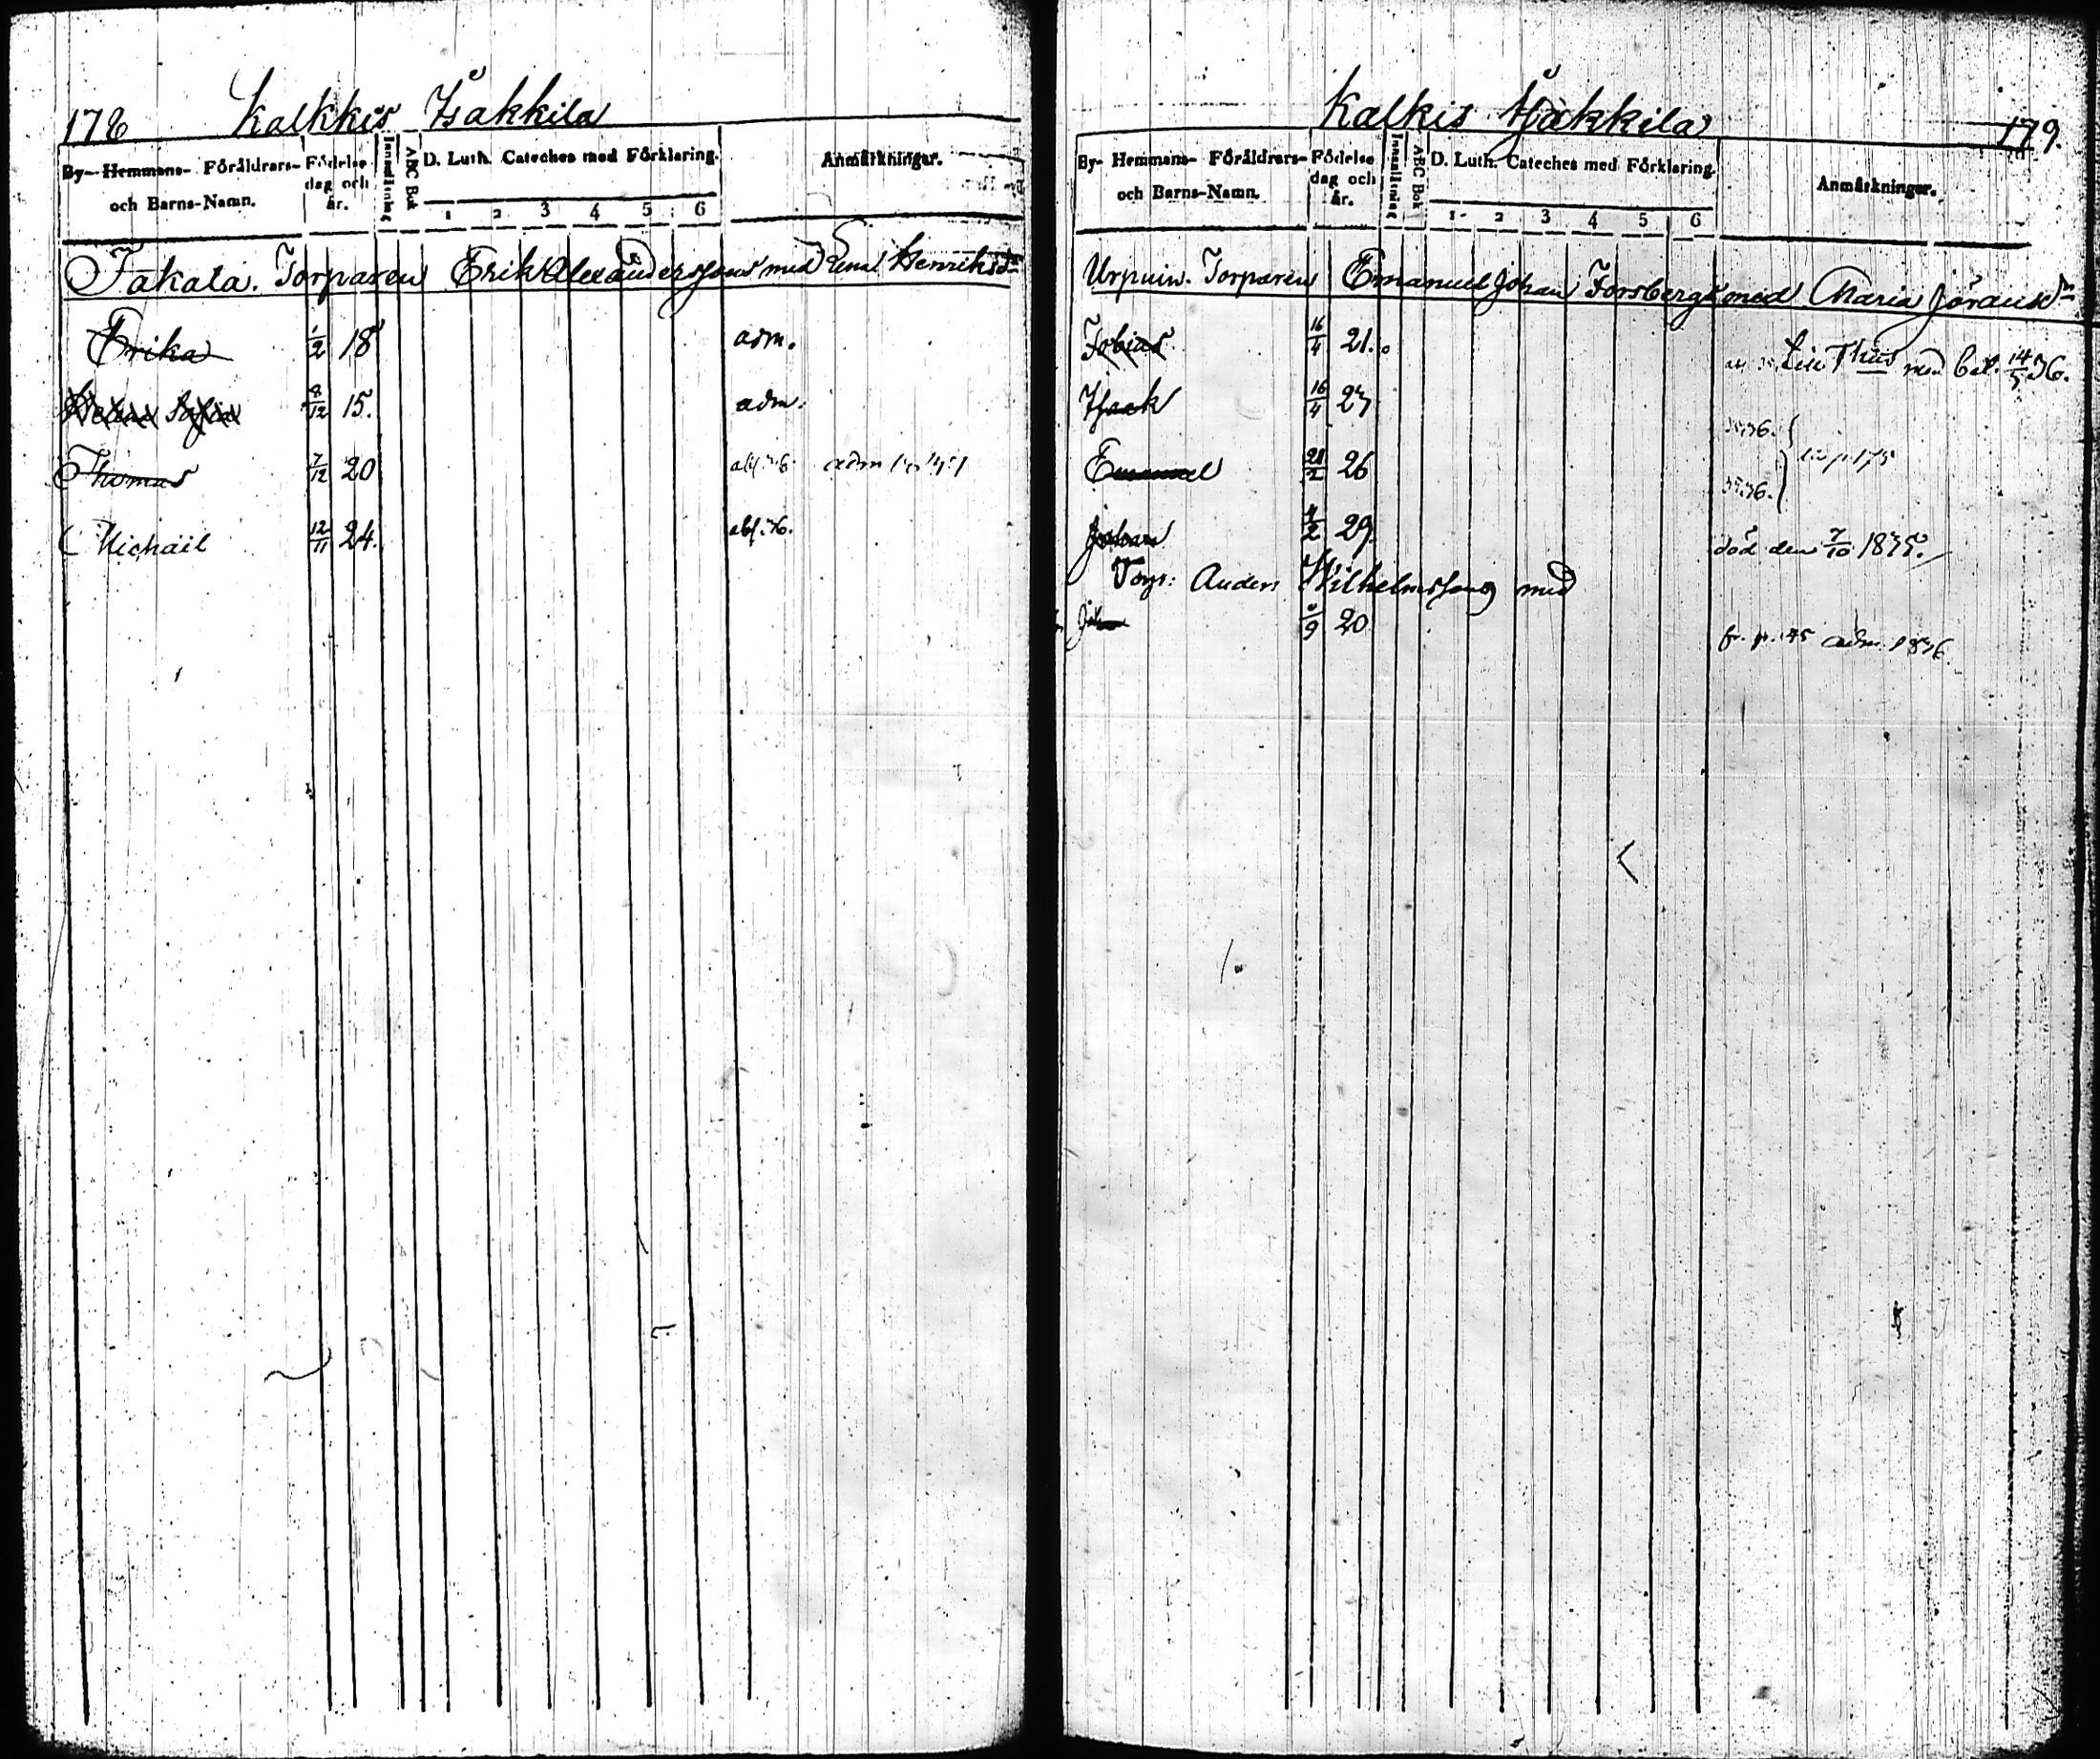 178 Kalkkis Isakkila
By- Hemmans- Föräldrars- och Barns-Namn. Födelse dag och år. Innanläsning ABC Bok D. Luth. Cateches med Förklaring. Anmärkningar.
1 2 3 4 5 6
Takala. Torparen Erik Alexanderssons med Lena Henriksdr
Erika 1/2 18 adm.
Sofia 8/12 15. adm.
Thomas 7/12 20 abs. 36. adm
Michaël 12/11 24. abs. 36.
Kalkis Isakkila 179.
By- Hemmans- Föräldrars- och Barns-Namn. Födelse dag och år. Innanläsning ABC Bok D. Luth. Cateches med Förklaring. Anmärkningar.
1 2 3 4 5 6
Torparen Emanuel Johan Forsbergs med Maria Jöransdr
Tobias 16/4 21. med bet. 14/5 36.
Isaak 16/4 27
Emanuel 28/2 26
Johan 4/2 29. död den 7/10 1835.
Torp: Anders Wilhelmssons med
Joh 20 fr. p. 45 adm. 1836.